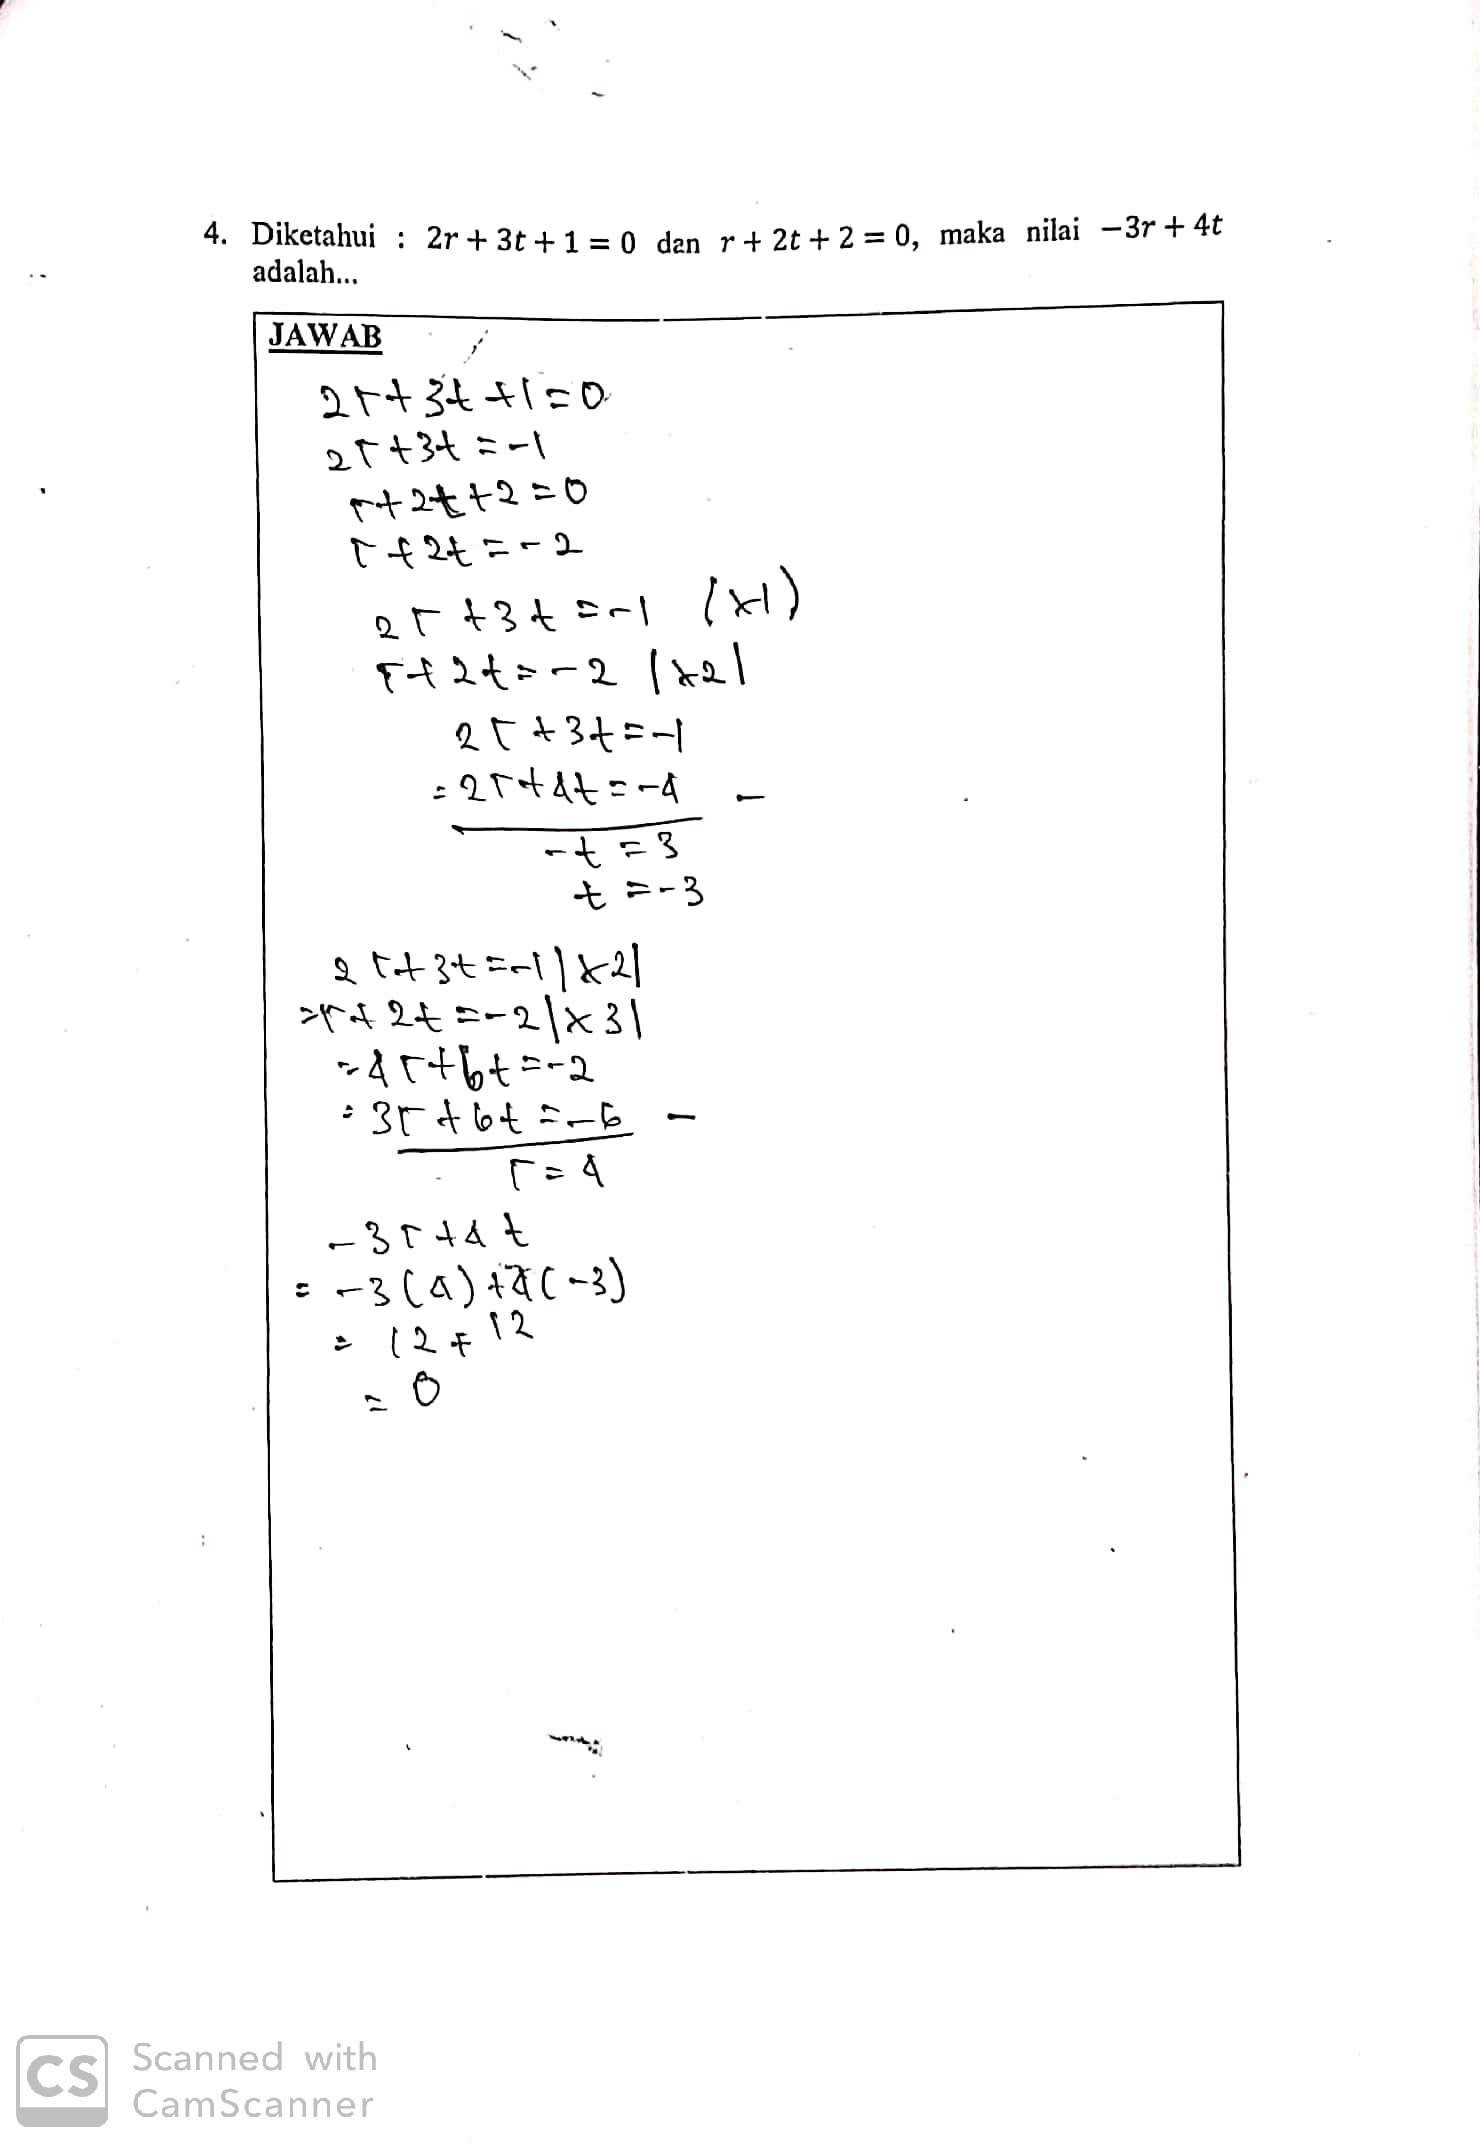 4. Diketahui : 2r + 3t + 1 = 0 dan r + 2t + 2 = 0, maka nilai −3r + 4t
adalah...
JAWAB
2r+3t+1=0
2r+3t=-1
r+2t+2=0
r+2t=-2
2r+3t=-1 (x1)
r+2t=-2 |x2|
2r+3t=-1
=2r+4t=-4 -
-t=3
t=-3
2r+3t=-1|x2|
=r+2t=-2|x3|
=4r+6t=-2
=3r+6t=-6 -
r=4
-3r+4t
= -3(4)+4(-3)
= 12+12
= 0
CS Scanned with
CamScanner